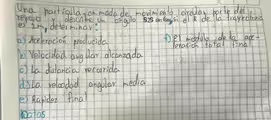 Una partícula animada de movimiento circular parte del
reposo y describe un ángulo en si el R de la trayectoria
es determinar:
a) Aceleración producida
b) Velocidad angular alcanzada
c) La distancia recorrida
d) La velocidad angular media
e) Rapidez final
f) El módulo de la ace-
leración total final
Datos